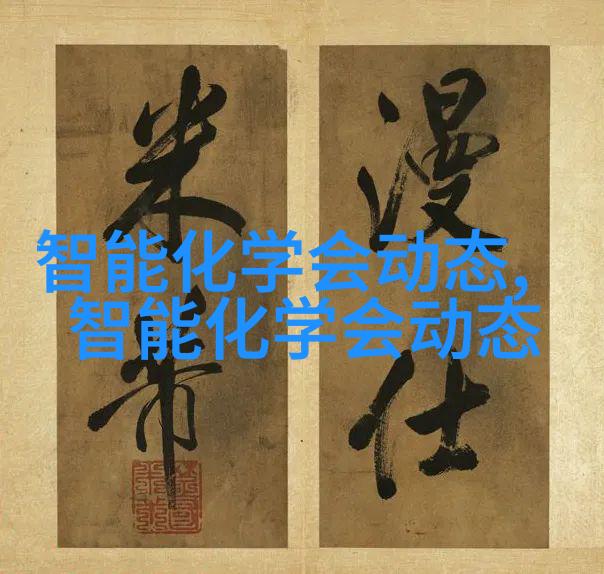 智能化学会动态,
智能化学会动态
漫仕
米芾